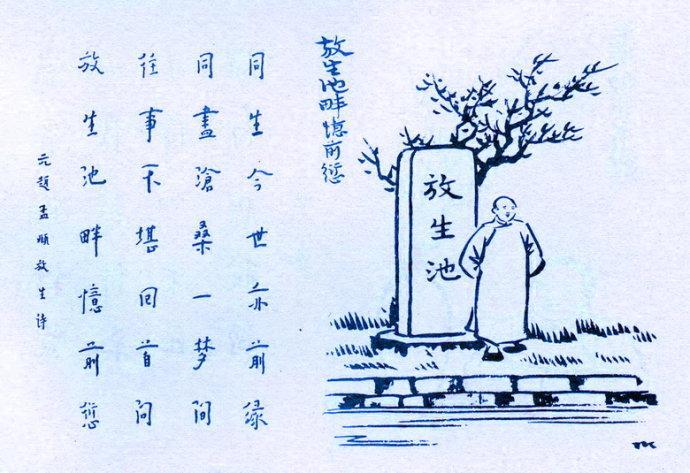 放生池畔憶前愆
放生池
同生今世亦前缘
同盡滄桑一梦间
往事不堪回首问
放生池畔憶前愆
元趙孟頫放生诗